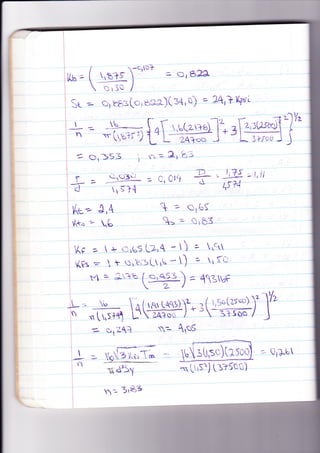 kb = (1,875 / 0,30)^-0,107 = 0,822
Se = 0,883(0,822)(34,0) = 24,7 kpsi
1/n = 16 / π(1,875³) {4[1.6(2178) / 24700]² + 3[2,3(2500) / 37500]²}^½
= 0,353 ; n = 2,83
r/d = 0,030 / 1,574 = 0,019 D/d = 1.75 / 1,574 = 1,11
kt = 2,4 q = 0,65
kts = 1,6 qs = 0,83
KF = 1 + 0,65(2,4 - 1) = 1,91
KFs = 1 + 0,83(1,6 - 1) = 1,50
M = 2178 (0,453 / 2) = 493 lbf
1/n = 16 / π(1,574³) [4(1,91(493) / 24700)² + 3(1,50(2500) / 37500)²]^½
= 0,247 n = 4,05
1/n = 16√3 KFs Tm / πd³Sy = 16√3(1,50)(2500) / π(1,5³)(37500) = 0,261
n = 3,83